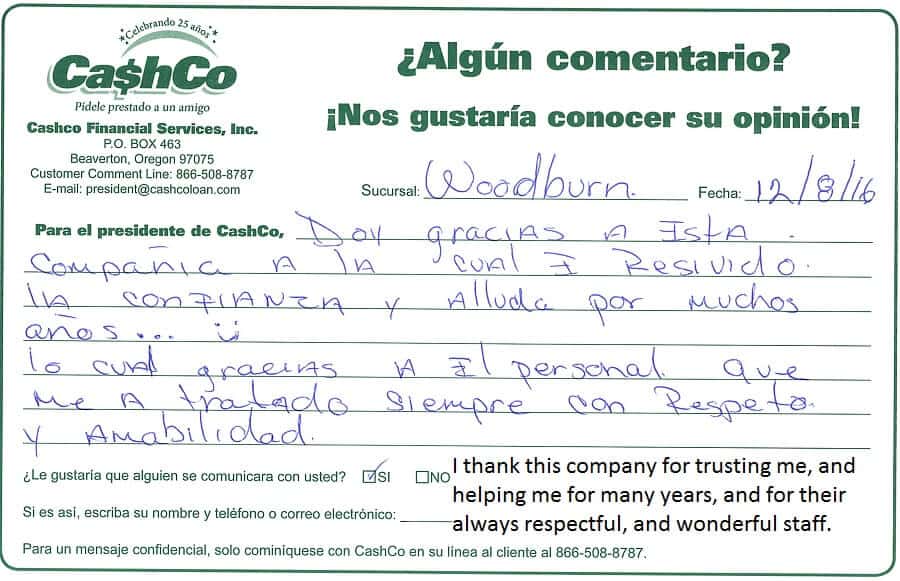 Celebrando 25 años
Ca$hCo
Pídele prestado a un amigo
Cashco Financial Services, Inc.
P.O. BOX 463
Beaverton, Oregon 97075
Customer Comment Line: 866-508-8787
E-mail: president@cashcoloan.com
¿Algún comentario?
¡Nos gustaría conocer su opinión!
Sucursal: Woodburn. Fecha: 12/8/16
Para el presidente de CashCo, Doy gracias A Esta.
Compañia A la cual E Resivido.
la confianza y Alluda por muchos
años... ü
lo cual gracias A El personal que
me A tratado siempre con Respeto.
y Amabilidad.
¿Le gustaria que alguien se comunicara con usted? ☑SI ☐NO
Si es así, escriba su nombre y teléfono o correo electrónico:
I thank this company for trusting me, and
helping me for many years, and for their
always respectful, and wonderful staff.
Para un mensaje confidencial, solo cominiquese con CashCo en su línea al cliente al 866-508-8787.